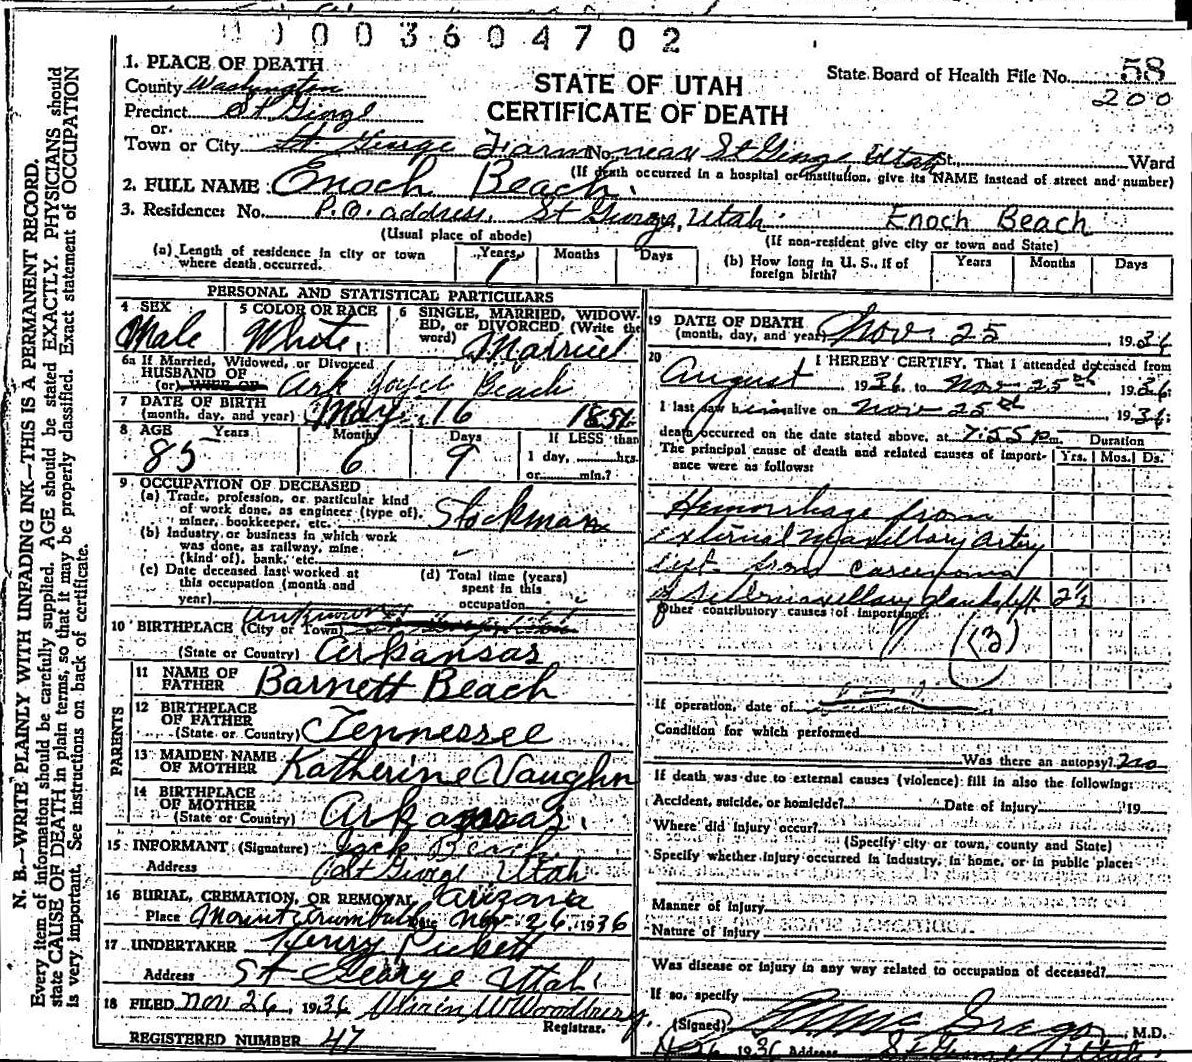 0003604702
1. PLACE OF DEATH
County Washington
Precinct St George
or
Town or City St George Farm No. near St George Utah St., Ward
STATE OF UTAH
CERTIFICATE OF DEATH
State Board of Health File No. 58
200
(If death occurred in a hospital or institution, give its NAME instead of street and number)
2. FULL NAME Enoch Beach.
3. Residence: No. P.O. address. St George, Utah. Enoch Beach
(Usual place of abode) (If non-resident give city or town and State)
(a) Length of residence in city or town where death occurred. Years 1 Months Days
(b) How long in U. S., if of foreign birth? Years Months Days
PERSONAL AND STATISTICAL PARTICULARS
4 SEX Male
5 COLOR OR RACE White
6 SINGLE, MARRIED, WIDOWED, or DIVORCED (Write the word) Married
6a If Married, Widowed, or Divorced
HUSBAND OF
(or) WIFE OF Beach
7 DATE OF BIRTH
(month, day, and year) May 16 1851
8 AGE Years 85 Months 6 Days 9
If LESS than
1 day, hrs.
or min.?
9 OCCUPATION OF DECEASED
(a) Trade, profession, or particular kind
of work done, as engineer (type of),
miner, bookkeeper, etc. Stockman
(b) Industry or business in which work
was done, as railway, mine
(kind of), bank, etc.
(c) Date deceased last worked at
this occupation (month and
year)
(d) Total time (years)
spent in this
occupation
10 BIRTHPLACE (City or Town) unknown
(State or Country) Arkansas
PARENTS
11 NAME OF
FATHER Barnett Beach
12 BIRTHPLACE
OF FATHER
(State or Country) Tennessee
13 MAIDEN NAME
OF MOTHER Katherine Vaughn
14 BIRTHPLACE
OF MOTHER
(State or Country) Arkansas.
15 INFORMANT (Signature) Jack Beach
Address St George Utah
16 BURIAL, CREMATION, OR REMOVAL Arizona
Place Mount Trumbull Date Nov 26, 1936
17 UNDERTAKER Henry Pickett
Address St George Utah
18 FILED Nov 26, 1936 Woodbury
Registrar.
REGISTERED NUMBER 47
19 DATE OF DEATH
(month, day, and year) Nov. 25 1936
20 I HEREBY CERTIFY, That I attended deceased from
August 1936, to Nov 25th, 1936;
I last saw him alive on Nov 25th, 1936;
death occurred on the date stated above, at 7:55 p.m. Duration
The principal cause of death and related causes of importance were as follows: Yrs. Mos. Ds.
Hemorrhage from
external maxillary artery
left from carcinoma
of submaxillary gland left. 2½
Other contributory causes of importance:
(3)
If operation, date of
Condition for which performed
Was there an autopsy? no
If death was due to external causes (violence) fill in also the following:
Accident, suicide, or homicide? Date of injury 19
Where did injury occur?
(Specify city or town, county and State)
Specify whether injury occurred in industry, in home, or in public place:
Manner of Injury
Nature of Injury
Was disease or injury in any way related to occupation of deceased?
If so, specify
(Signed) M.D.
1936 Address St George Utah
N. B.—WRITE PLAINLY WITH UNFADING INK—THIS IS A PERMANENT RECORD.
Every item of information should be carefully supplied. AGE should be stated EXACTLY. PHYSICIANS should
state CAUSE OF DEATH in plain terms, so that it may be properly classified. Exact statement of OCCUPATION
is very important. See instructions on back of certificate.